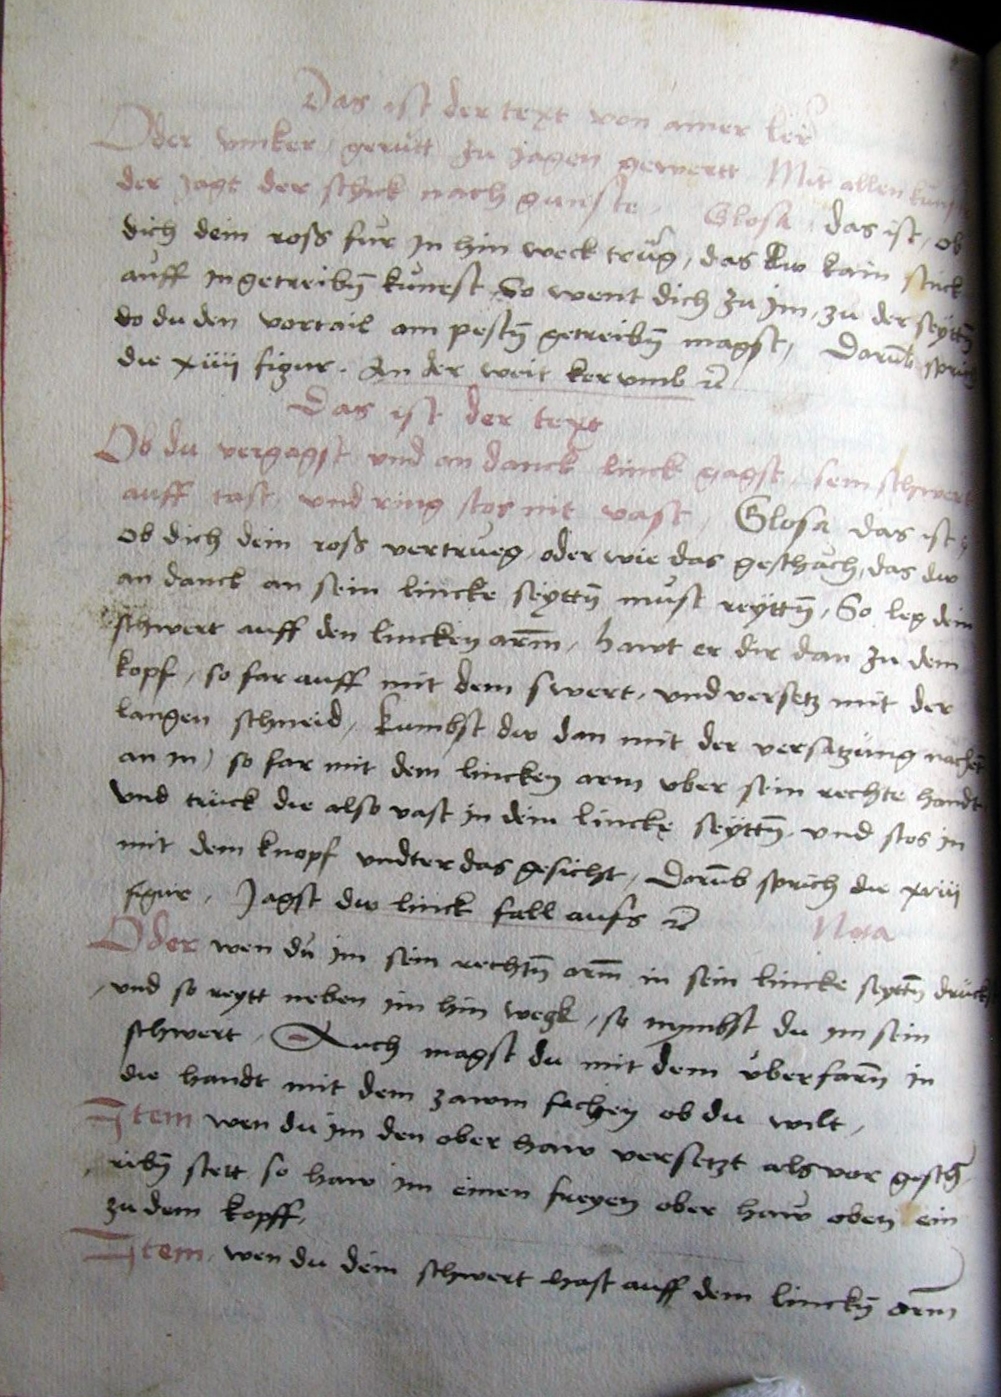 Das ist der text von ainer ler
Oder vmker geruit zu jagen gewertt Mit allen kunst
der jagt der schick nach gunste Glosa das ist, ob
dich dein ross fur in hin weck trüg, das dw kain stuck
auff in getreibn̄ kunest So went dich zu jm, zu der seyttn̄
do du den vortail am pestn̄ getreibn̄ magst, Dorūb sprich
die xiiij figur. An der weit ker vmb rc̄
Das ist der text
Ob du vergagst vnd an danck linck gagst, sein schwert
auff tast, vnd ring stos nit vast, Glosa das ist
ob dich dein ross vertrueg, oder wie das geschach, das dw
an danck an sein lincke seyttn̄ must reyttn̄, So leg dein
schwert auff den lincken arm̄, hawt er dir dan zu dem
kopf, so far auff mit dem swert, vnd versetz mit der
langen schneid, kumbst dw dan mit der versatzung nachent
an in, so far mit dem lincken arm vber sein rechte handt
vnd trück die also vast in dein lincke seyttn̄, vnd stos in
mit dem knopf vndter das gesicht, Dorūb sprich die xviij
figur, Jagst dw linck fall aufs rc̄ Nota
Oder wen du im sein rechtn̄ arm̄ in sein lincke seyttn̄ drückst
vnd so reytt neben im hin wegk, so nymbst du im sein
schwert, Auch magst du mit dem vberfarn̄ in
die handt mit dem zawm fachen ob du wilt,
Item wen du im den ober haw versetzt als vor gesch
ribn̄ stett so haw im einen freyen ober haw oben ein
zu dem kopff,
Item, wen du dein schwert hast auff dem linckn̄ arm